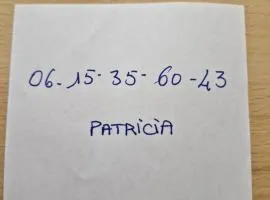 06-15-35-60-43
PATRICIA